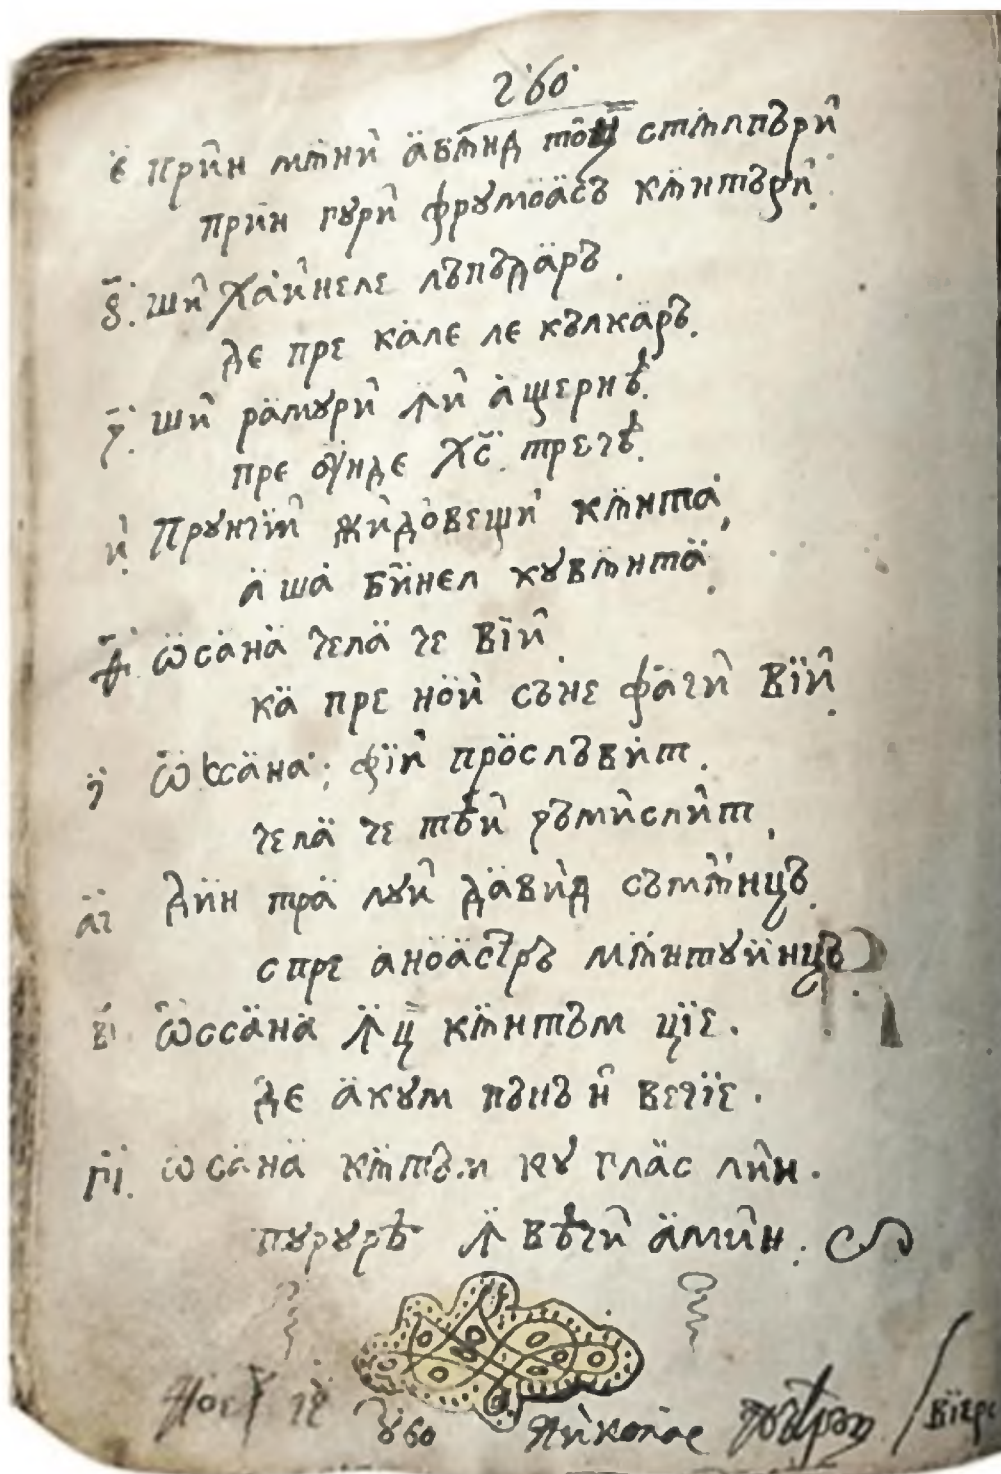 є҃ прин мѫни авѫнд тоц стѫлпъри
прин гури фрумоасъ кѫнтъри.
ѕ҃. ши хаинеле лъпъдаръ.
де пре кале ле кълкаръ.
з҃. ши рамури ꙟи ащернѣ.
пре ѹнде хс. тречѣ.
и҃. Прунчїи жидовещи кѫнта,
аша бинел кувѫнта.
ѳ҃. ѡсана чела че вїи.
ка пре нои съне фачи вїи.
і҃ ѡссана; фїи прославит.
чела че
а҃і дин тра луи давид съмѫнцъ
спре аноастръ мѫнтуинцъ
в҃і ѡссана ꙟц кѫнтъм цїе.
де акум пънъ н вечїе.
г҃і. ѡсана кѫтъм ку глас лин.
пурурѣ ꙟ вѣчи амин.
Николае
вїерс